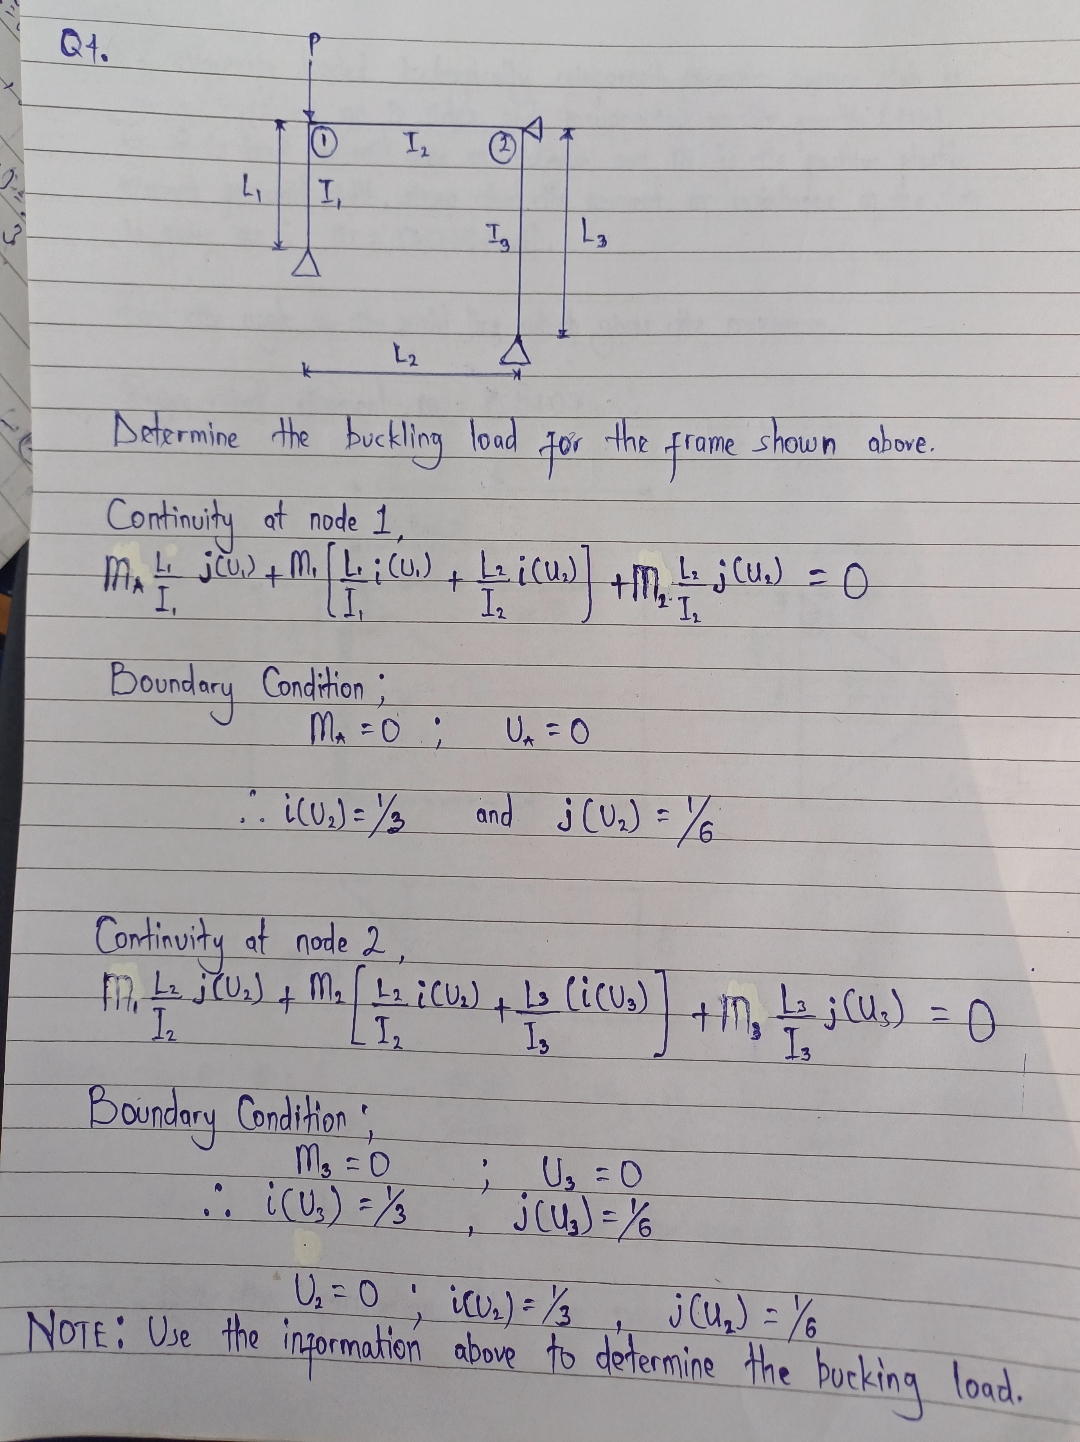 Q1.
P
① I₂ ②
L₁ I₁
I₃ L₃
L₂
Determine the buckling load for the frame shown above.
Continuity at node 1,
M_A L₁/I₁ j(U₁) + M₁ [L₁/I₁ i(U₁) + L₂/I₂ i(U₂)] + M₂ L₂/I₂ j(U₂) = 0
Boundary Condition ;
M_A = 0 ; U_A = 0
∴ i(U₂) = 1/3 and j(U₂) = 1/6
Continuity at node 2,
M₁ L₂/I₂ j(U₂) + M₂ [L₂/I₂ i(U₂) + L₃/I₃ (i(U₃)] + M₃ L₃/I₃ j(U₃) = 0
Boundary Condition ;
M₃ = 0 ; U₃ = 0
∴ i(U₃) = 1/3 , j(U₃) = 1/6
U₂ = 0 ; i(U₂) = 1/3 , j(U₂) = 1/6
NOTE: Use the information above to determine the bucking load.